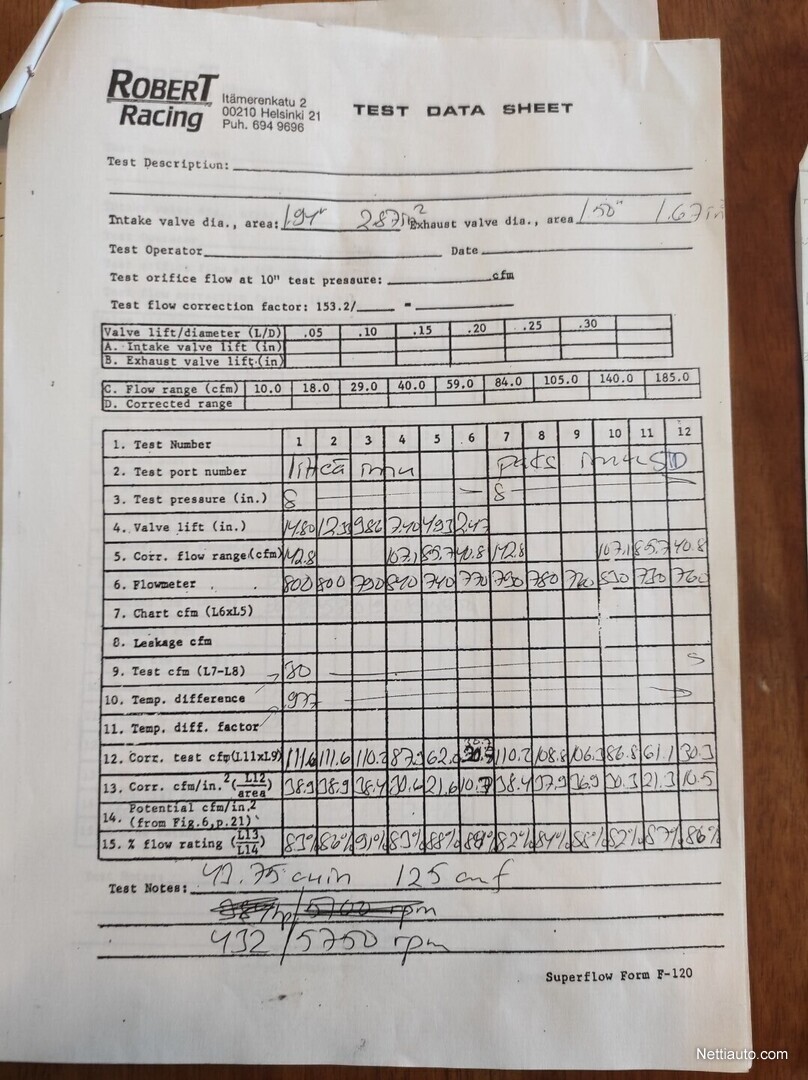 ROBERT Racing
Itämerenkatu 2
00210 Helsinki 21
Puh. 694 9696
TEST DATA SHEET
Test Description:
Intake valve dia., area: 1.94" 2.87 in² Exhaust valve dia., area 1.50" 1.67 in
Test Operator Date
Test orifice flow at 10" test pressure: cfm
Test flow correction factor: 153.2/ =
Valve lift/diameter (L/D) .05 .10 .15 .20 .25 .30
A. Intake valve lift (in)
B. Exhaust valve lift (in)
C. Flow range (cfm) 10.0 18.0 29.0 40.0 59.0 84.0 105.0 140.0 185.0
D. Corrected range
1. Test Number 1 2 3 4 5 6 7 8 9 10 11 12
2. Test port number imu STD
3. Test pressure (in.) 8 8
4. Valve lift (in.) 14.80 12.33 9.86 7.40 4.93 2.47
5. Corr. flow range (cfm) 142.8 107.1 85.7 40.8 142.8 107.1 85.7 40.8
6. Flowmeter 800 800 790 840 740 770 790 780 760 830 730 760
7. Chart cfm (L6xL5)
8. Leakage cfm
9. Test cfm (L7-L8) 30
10. Temp. difference .977
11. Temp. diff. factor
12. Corr. test cfm (L11xL9) 111.6 111.6 110.2 87.9 62.0 110.2 108.8 106.3 86.8 61.1 30.3
13. Corr. cfm/in.² (L12/area) 38.9 38.9 38.4 30.6 21.6 10.7 38.4 37.9 36.9 30.3 21.3 10.5
14. Potential cfm/in.² (from Fig.6,p.21)
15. % flow rating (L13/L14) 83% 86% 91% 83% 88% 88% 82% 84% 88% 82% 87% 86%
Test Notes: 43.75 cuin 125 cmf
432/5750 rpm
Superflow Form F-120
Nettiauto.com